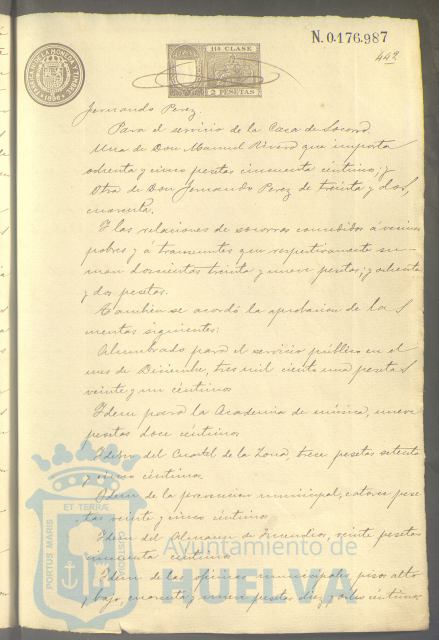 N. 0.176.987
442
11ª CLASE
2 PESETAS
Fernando Perez.
Para el servicio de la Casa de Socorro
Una de Don Manuel Rivero que importa
ochenta y cinco pesetas cincuenta céntimos; y
Otra de Don Fernando Perez de treinta y dos,
cuarenta.
Y las relaciones de socorros concedidos á vecinos
pobres y á transeuntes que respectivamente su-
man doscientas treinta y nueve pesetas; y ochenta
y dos pesetas.
Tambien se acordó la aprobacion de las
cuentas siguientes:
Alumbrado para el servicio público en el
mes de Diciembre, tres mil ciento una pesetas
veinte y un céntimos
Idem para la Academia de música, nueve
pesetas doce céntimos.
Idem del Cuartel de la Zona, trece pesetas setenta
y cinco céntimos.
Idem de la prevencion municipal, catorce pese
tas veinte y cinco céntimos
Idem del Almacen de Incendios, veinte pesetas
cincuenta céntimos
Idem de las oficinas municipales, pisos alto
y bajo, cuarenta y nueve pesetas diez y ocho céntimos
PORTUS MARIS
ET TERRÆ
CUSTODIA
Ayuntamiento de
HUELVA